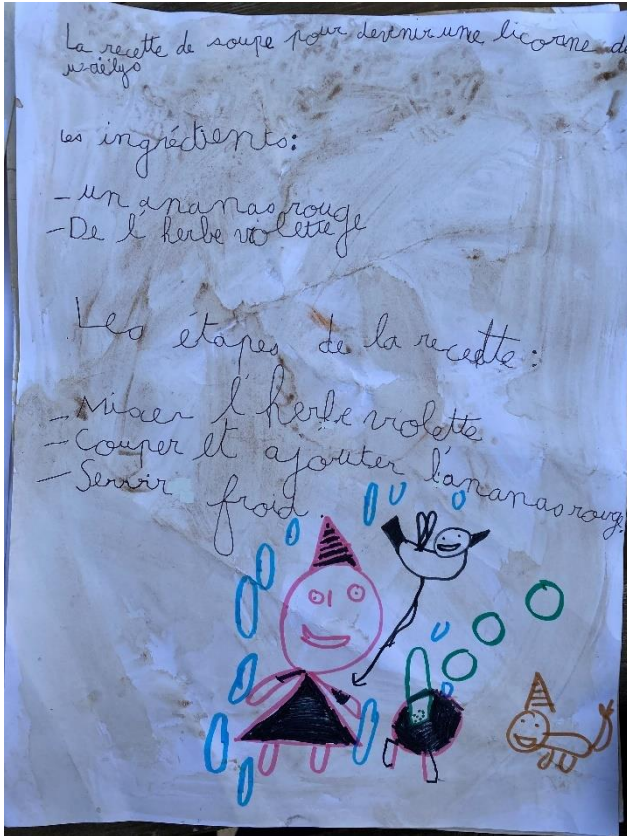 La recette de soupe pour devenir une licorne de
Maëlys
Les ingrédients:
- un ananas rouge
- De l'herbe violette
Les étapes de la recette:
- Mixer l'herbe violette
- Couper et ajouter l'ananas rouge.
- Servir froid.